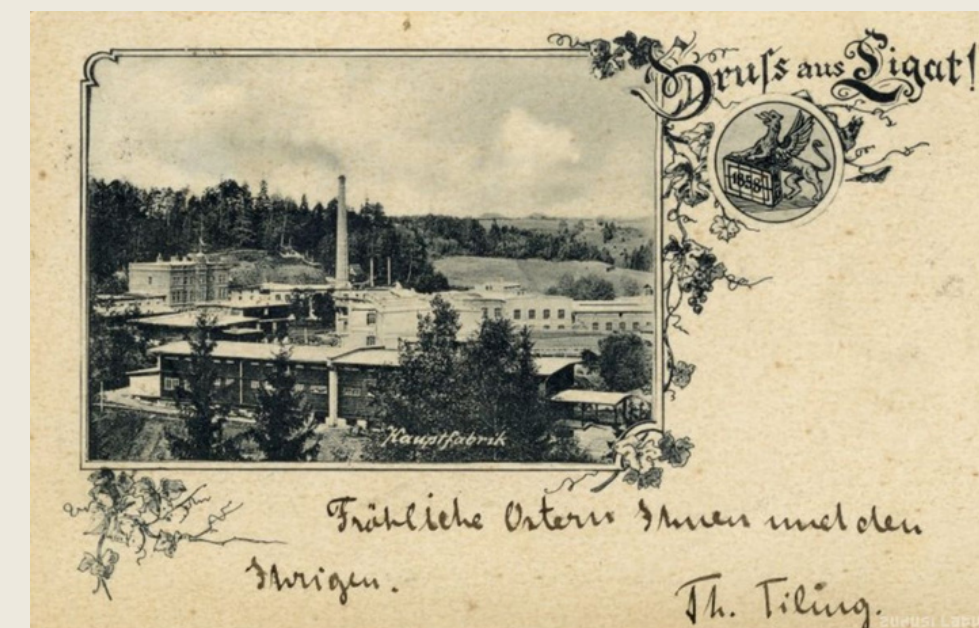 Gruss aus Ligat!
1858
Hauptfabrik
Fröhliche Ostern Ihnen und den
Ihrigen.
Th. Tiling.